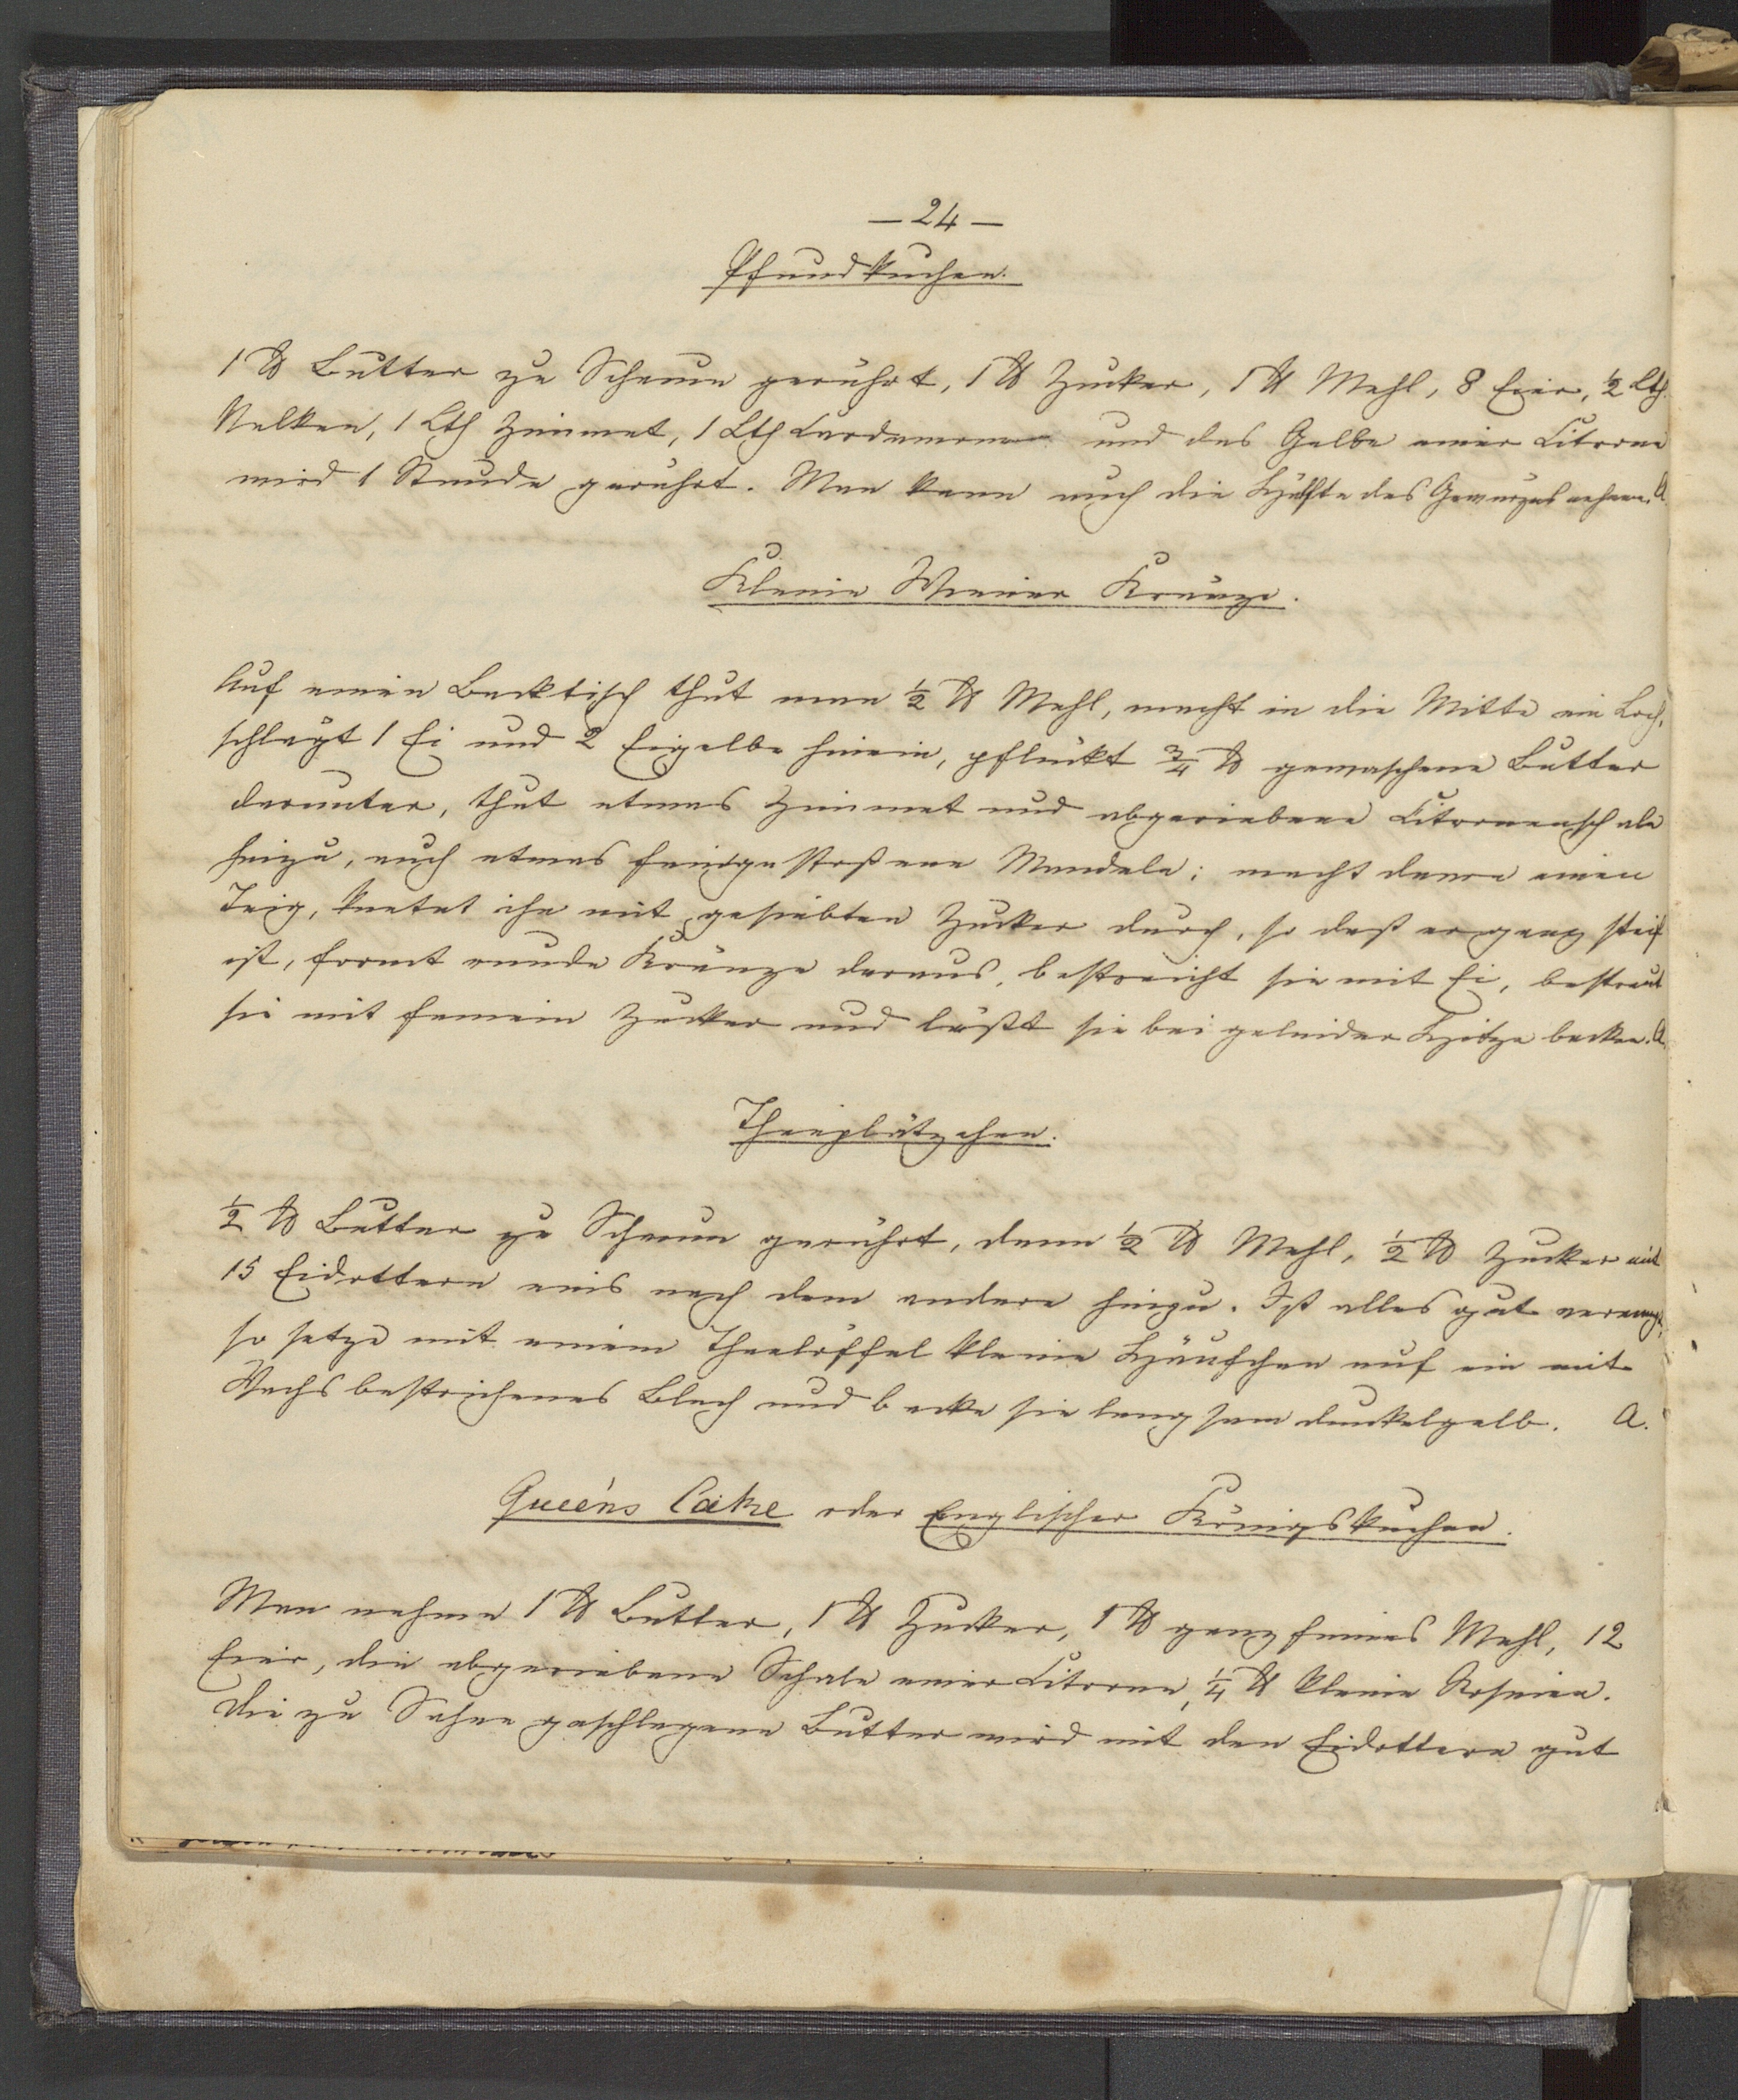 — 24 —
Pfundkuchen.
1 ℔ Butter zu Schaum gerührt, 1 ℔ Zucker, 1 ℔ Mehl, 8 Eier, ½ Lth.
Nelken, 1 Lth Zimmet, 1 Lth Cardamomen und das Gelbe einer Citrone
wird 1 Stunde gerührt. Man kann auch die Hälfte des Gewürzes nehmen. A.
Kleine Wiener Kränze.
Auf einen Backtisch thut man ½ ℔ Mehl, macht in die Mitte ein Loch,
schlägt 1 Ei und 2 Eigelbe hinein, pflückt ¾ ℔ gewaschene Butter
darunter, thut etwas Zimmet und abgeriebene Citronenschale
hinzu, auch etwas feingestoßene Mandeln; macht dann einen
Teig, knetet ihn mit gesiebten Zucker durch, so daß er ganz steif
ist, formt runde Kränze daraus, bestreicht sie mit Ei, bestreut
sie mit feinem Zucker und läßt sie bei gelinder Hitze backen. A.
Theeplätzchen.
½ ℔ Butter zu Schaum gerührt, dann ½ ℔ Mehl, ½ ℔ Zucker mit
15 Eidottern eins nach dem andern hinzu. Ist alles gut vermengt,
so setze mit einem Theelöffel kleine Häufchen auf ein mit
Wachs bestrichenes Blech und backe sie langsam dunkelgelb. A.
Queen's Cake oder Englischer Königskuchen.
Man nehme 1 ℔ Butter, 1 ℔ Zucker, 1 ℔ ganz feines Mehl, 12
Eier, die abgeriebene Schale einer Citrone, ¼ ℔ kleine Rosinen.
Die zu Sahne geschlagene Butter wird mit den Eidottern gut